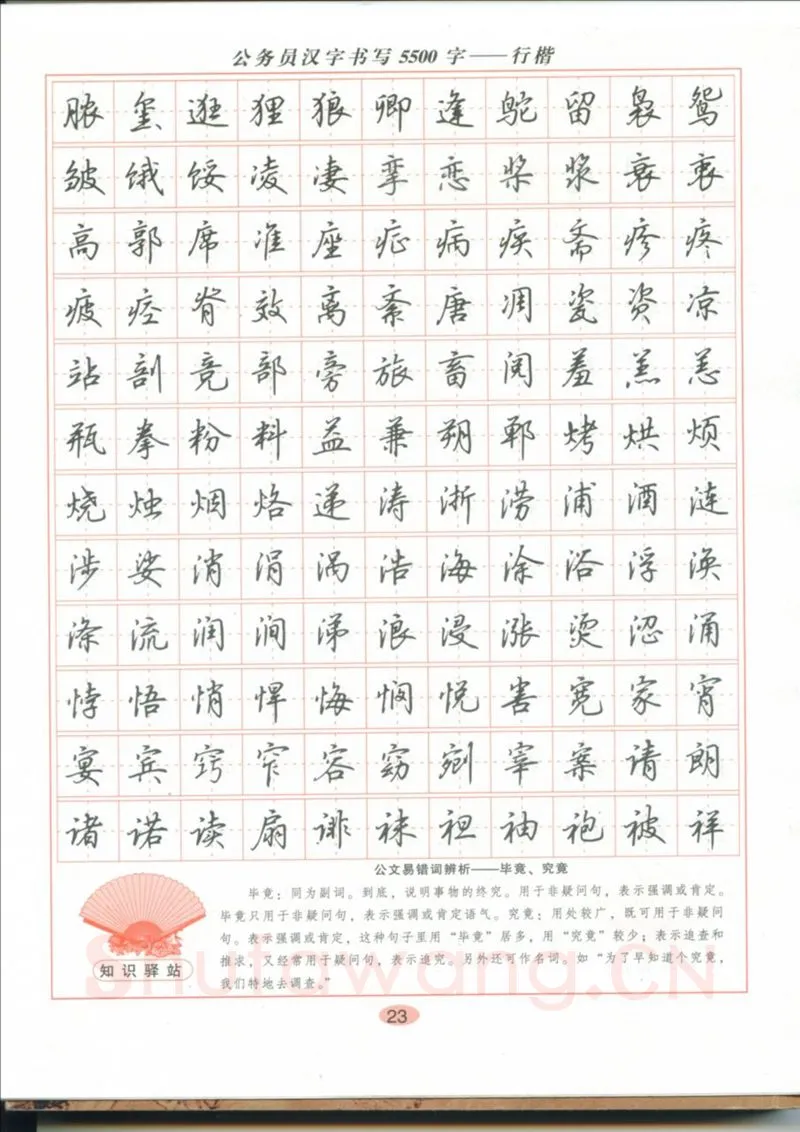 公务员汉字书写5500字——行楷
脓玺逛狸狼卿逢鸵留袅鸳
皱饿馁凌凄挛恋桨浆衰衷
高郭席准座症病疾斋疹疼
疲痉脊效离紊唐凋瓷资凉
站剖竞部旁旅畜阅羞羔恙
瓶拳粉料益兼朔郸烤烘烦
烧烛烟烙递涛浙涝浦酒涟
涉娑消涓涡浩海涂浴浮涣
涤流润涧涕浪浸涨烫涩涌
悖悟悄悍悔悯悦害宽家宵
宴宾窍窄容窈剜宰案请朗
诸诺读扇诽袜袒袖袍被祥
公文易错词辨析——毕竟、究竟
毕竟：同为副词。到底，说明事物的终究。用于非疑问句，表示强调或肯定。
毕竟只用于非疑问句，表示强调或肯定语气。究竟：用处较广，既可用于非疑问
句。表示强调或肯定，这种句子里用“毕竟”居多，用“究竟”较少；表示追查和
推求，又经常用于疑问句，表示追究。另外还可作名词。如“为了早知道个究竟，
我们特地去调查。”
知识驿站
Shufawang.CN
23